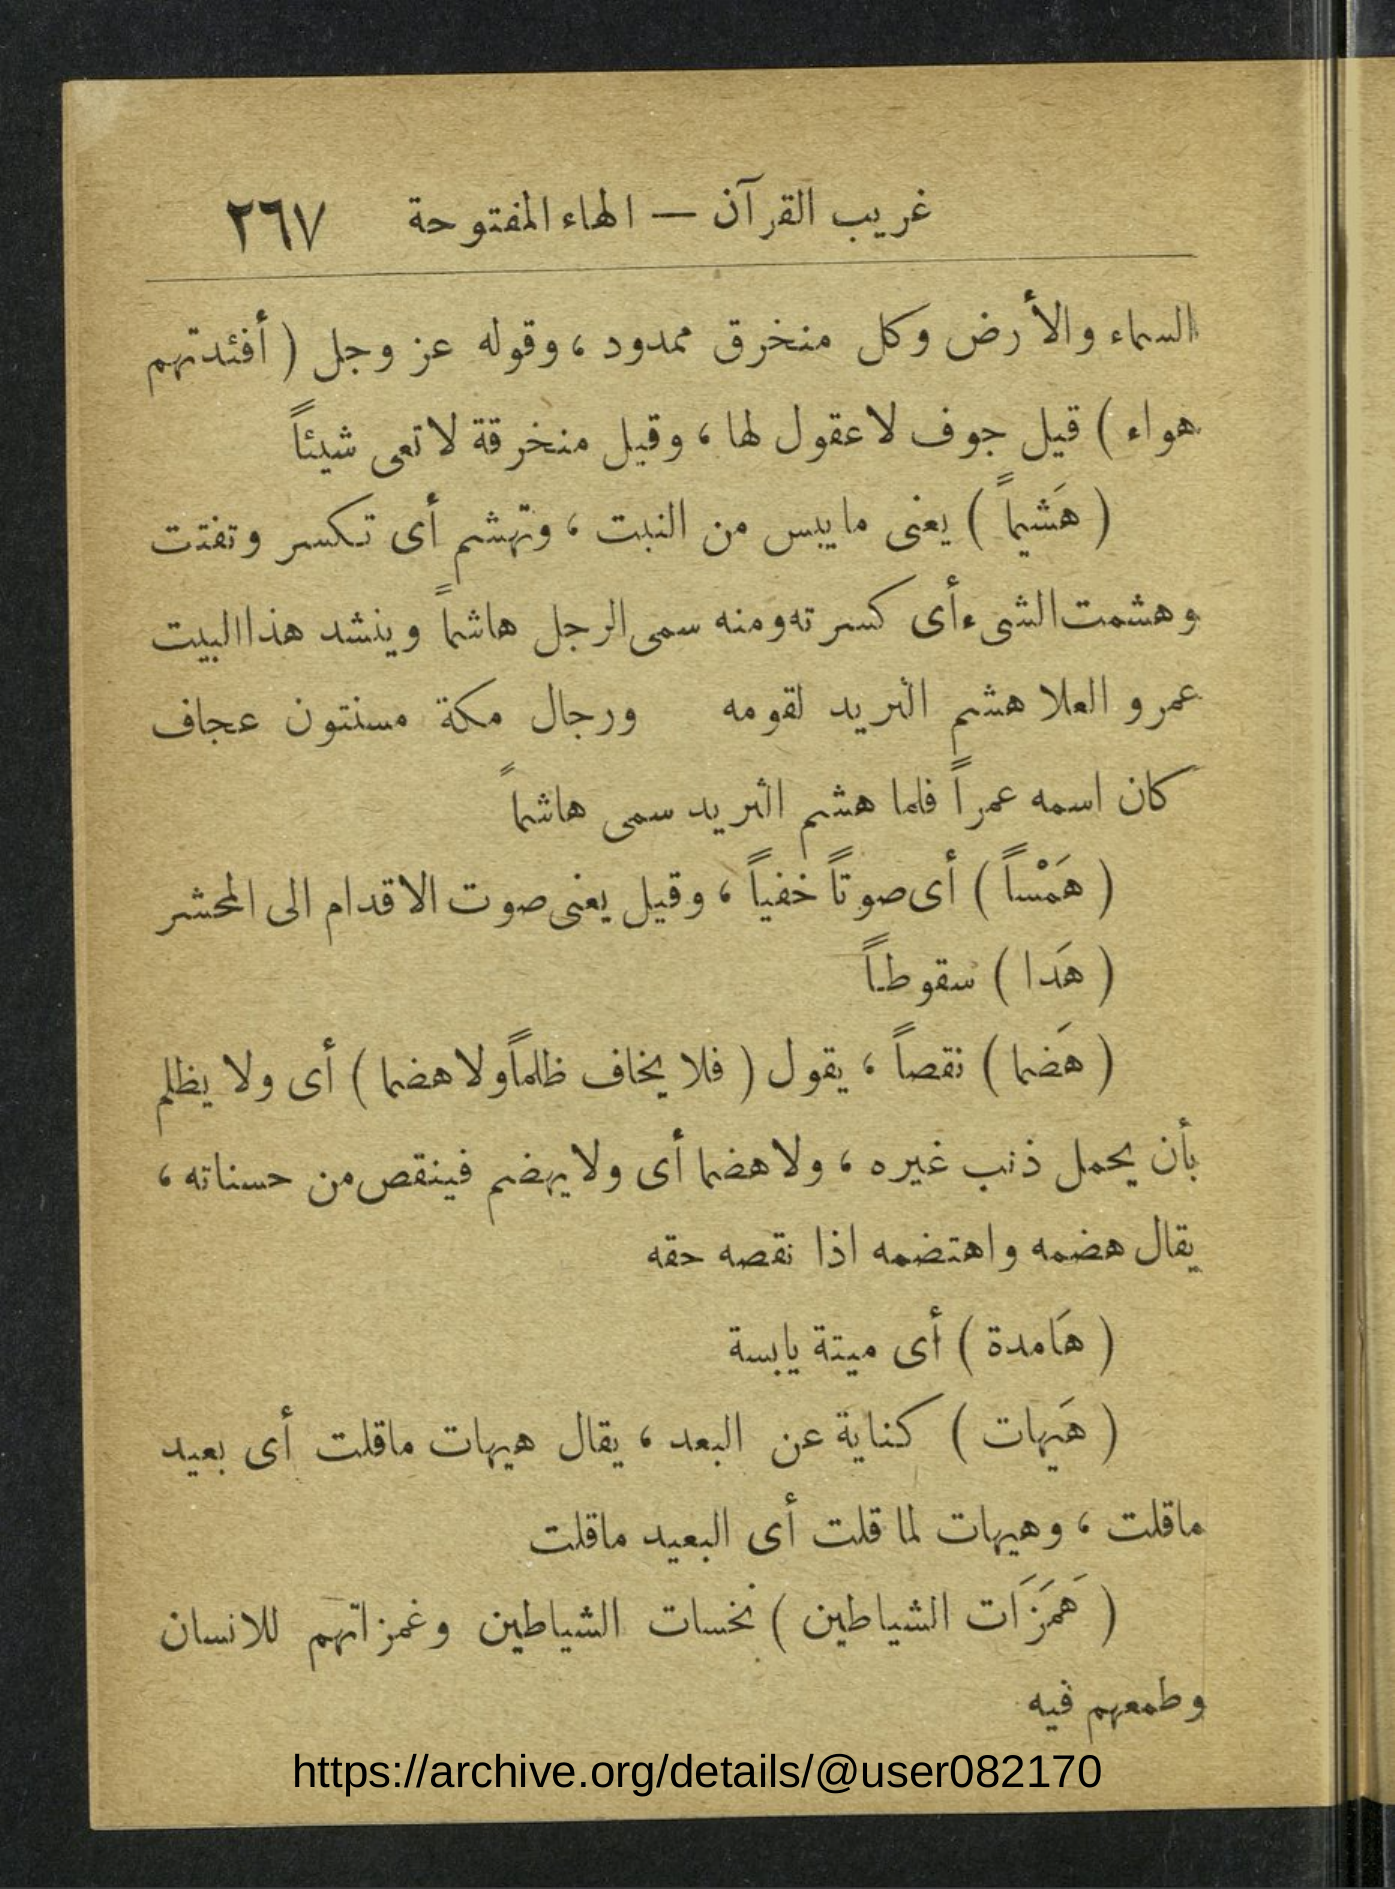 غريب القرآن — الهاء المفتوحة ٢٦٧
السماء والأرض وكل منخرق ممدود ، وقوله عز وجل ( أفئدتهم
هواء ) قيل جوف لا عقول لها ، وقيل منخرقة لا تعى شيئاً
( هَشيماً ) يعنى ما يبس من النبت ، وتهشم أى تكسر وتفتت
وهشمت الشىء أى كسرته ومنه سمى الرجل هاشماً وينشد هذا البيت
عمرو العلا هشم الثريد لقومه ورجال مكة مسنتون عجاف
كان اسمه عمراً فلما هشم الثريد سمى هاشماً
( هَمْساً ) أى صوتاً خفياً ، وقيل يعنى صوت الاقدام الى المحشر
( هَدا ) سقوطاً
( هَضما ) نقصاً ، يقول ( فلا يخاف ظلماً ولا هضما ) أى ولا يظلم
بأن يحمل ذنب غيره ، ولا هضما أى ولا يهضم فينقص من حسناته ،
يقال هضمه واهتضمه اذا نقصه حقه
( هَامدة ) أى ميتة يابسة
( هَيهات ) كناية عن البعد ، يقال هيهات ماقلت أى بعيد
ماقلت ، وهيهات لما قلت أى البعيد ماقلت
( هَمَزَات الشياطين ) نخسات الشياطين وغمزاتهم للانسان
وطمعهم فيه
https://archive.org/details/@user082170